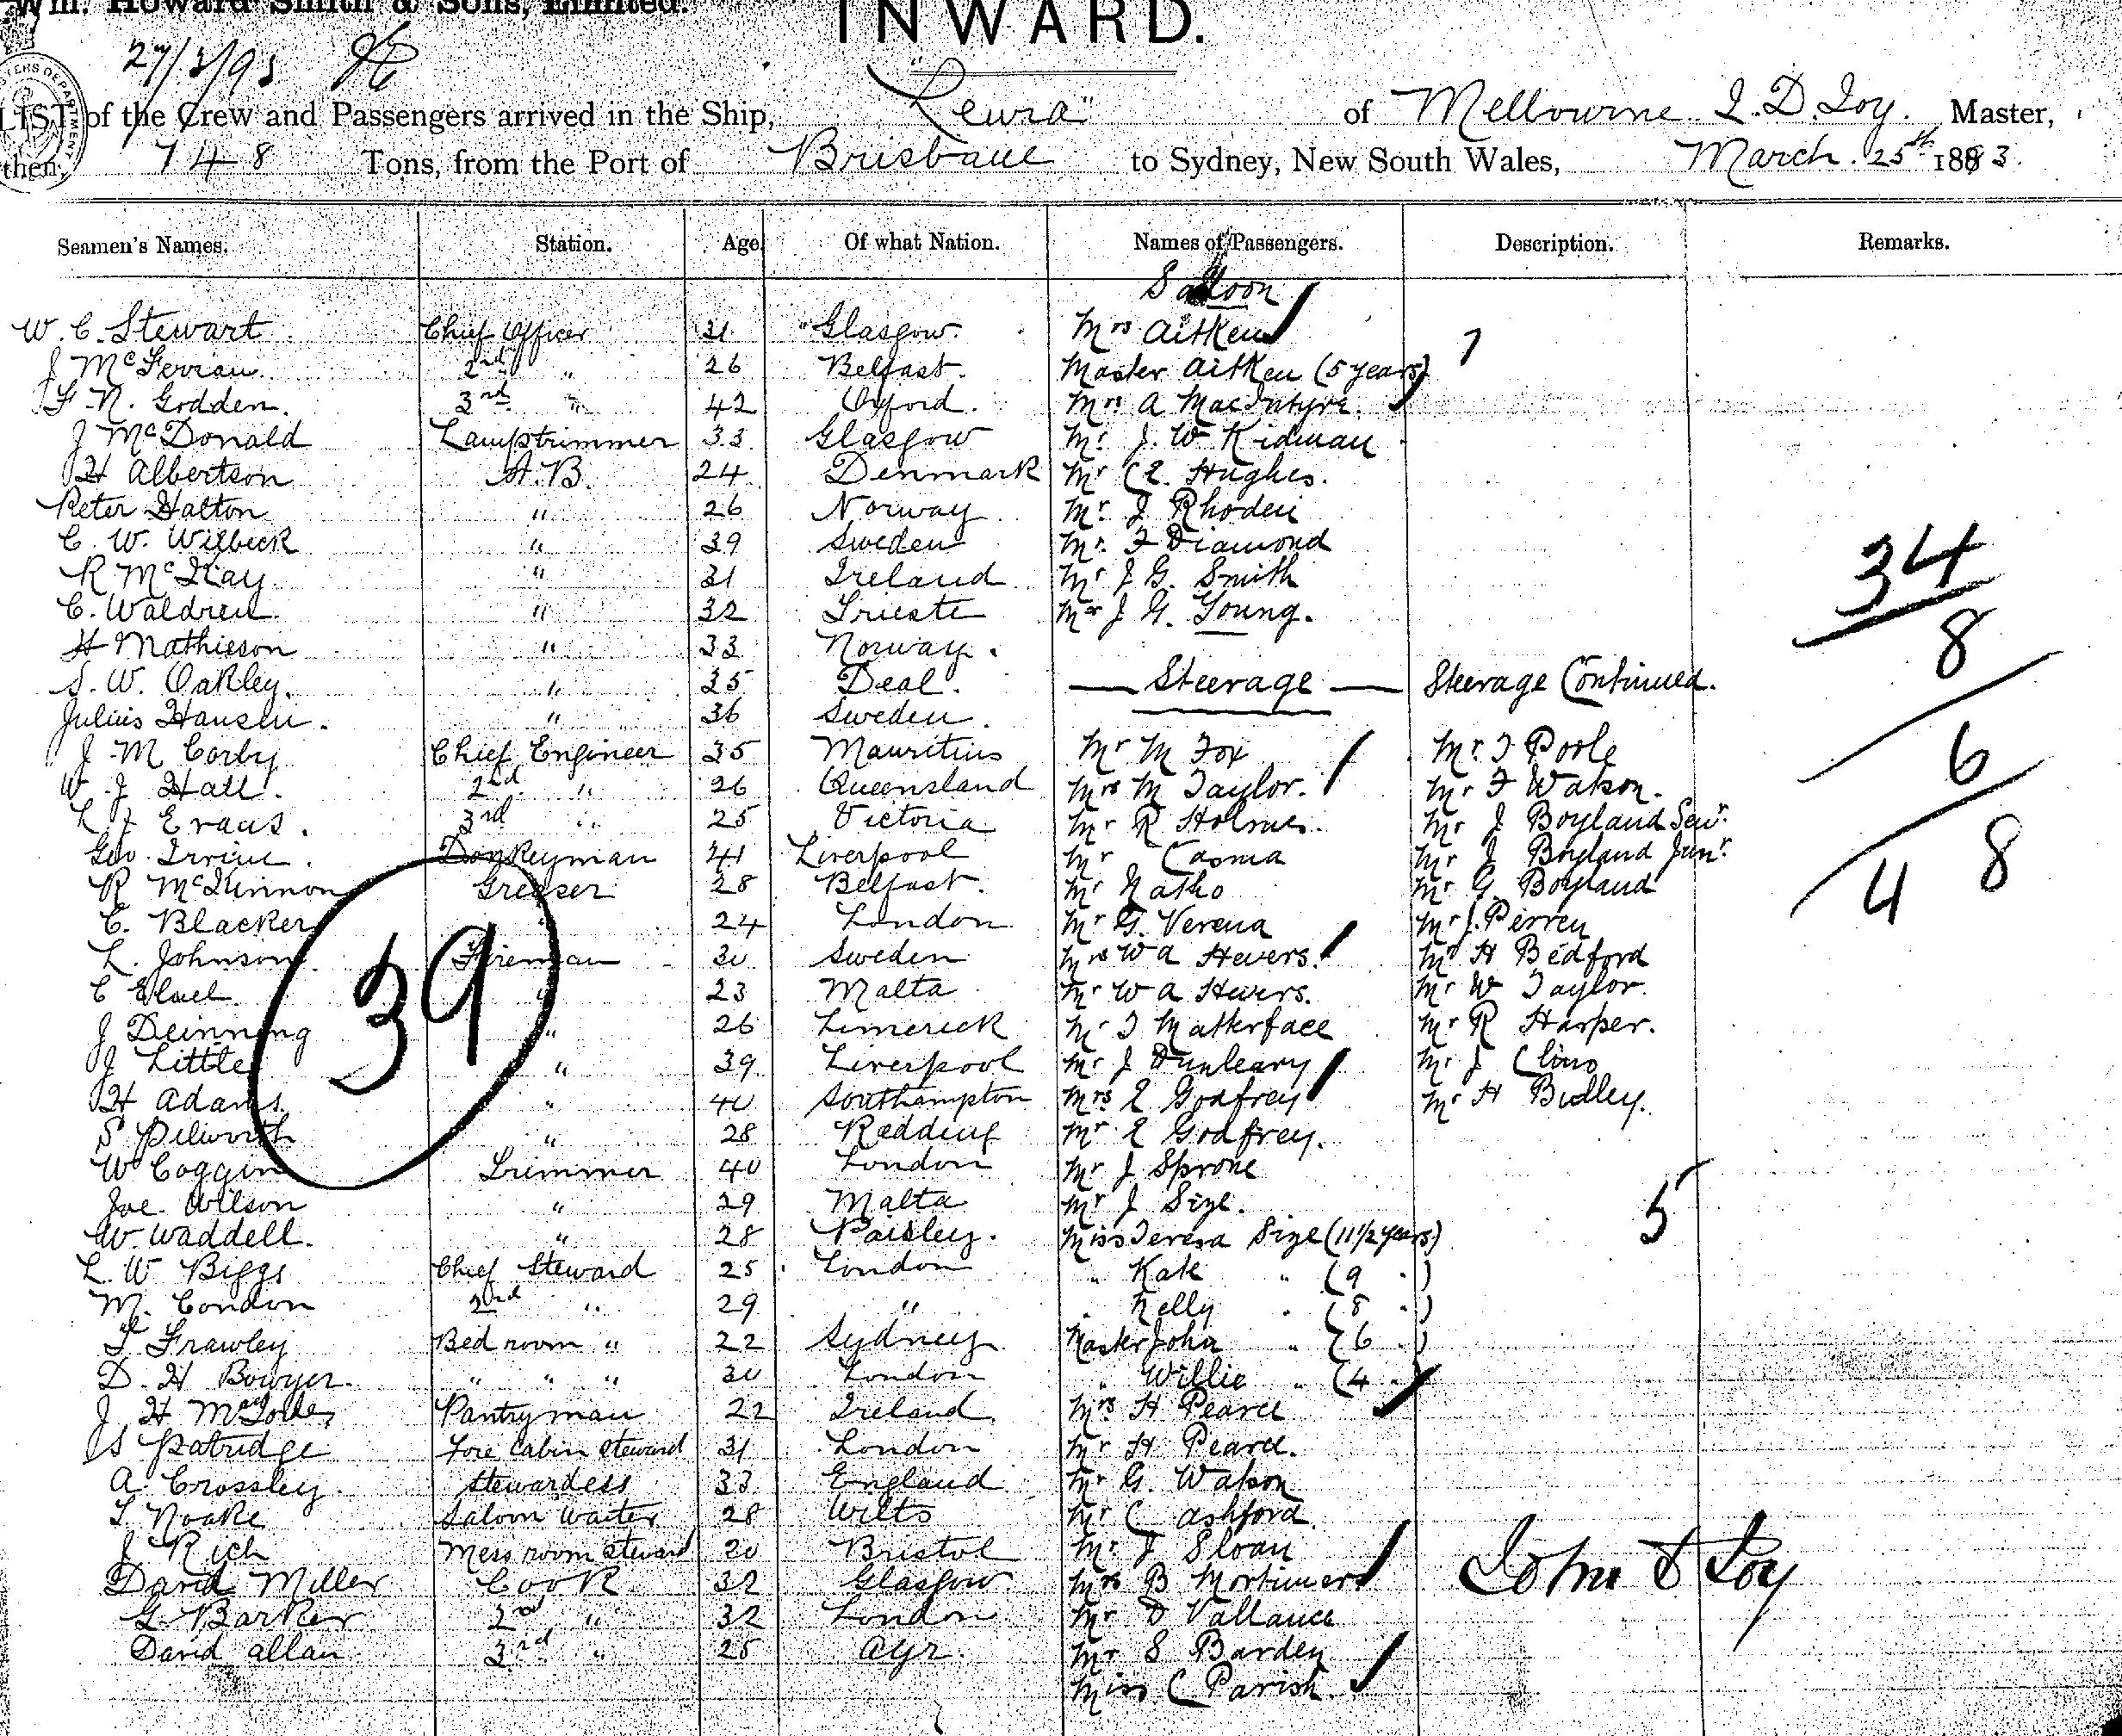 Wm. Howard Smith & Sons, Limited.
INWARD.
27/3/93
LIST of the Crew and Passengers arrived in the Ship, "Leura" of Melbourne J. D. Joy. Master,
then, 748 Tons, from the Port of Brisbane to Sydney, New South Wales, March. 25th 1893.
Seamen's Names. Station. Age Of what Nation. Names of Passengers. Description. Remarks.
Saloon
W. C. Stewart Chief Officer 31 Glasgow. Mrs Aitken 7
J McFerran 2nd " 26 Belfast. Master Aitken (5 years)
F. N. Godden. 3rd " 42 Oxford. Mrs A MacIntyre.
J McDonald Lamptrimmer 33 Glasgow Mr J. W Kidman
H Albertson A.B. 24 Denmark Mr C E. Hughes.
Peter Halton " 26 Norway Mr. J Rhoden
C. W. Wilbeck " 39 Sweden Mr. F Diamond
R McKay " 31 Ireland Mr J G. Smith 34
C. Waldren " 32 Trieste Mr J G. Young.
H Mathieson " 33 Norway. 8
S. W. Oakley. " 35 Deal. Steerage Steerage Continued.
Julius Hansen. " 36 Sweden.
J M Corby Chief Engineer 35 Mauritius Mr M Fox Mr. T Poole 6
W. J Hall. 2nd " 26 Queensland Mrs M Taylor. Mr F Watson.
L J Evans. 3rd " 25 Victoria Mr R Holmes Mr J Boyland Senr.
Geo. Irvine. Donkeyman 41 Liverpool Mr Casma Mr J Boyland Junr. 8
R McKinnon Greaser 28 Belfast. Mr Natho Mr G. Boyland 4
C. Blacker " 24 London Mr G. Verena Mr J. Perren
39
L. Johnson Fireman 30 Sweden Mrs W A Hevers. Mr H Bedford
C Eluel " 23 Malta Mr W A Hevers. Mr W Taylor.
J Deinning " 26 Limerick Mr T Matterface Mr R Harper.
J Little " 39 Liverpool Mr J Dunleavy Mr J Clino
H Adams " 40 Southampton Mrs E Godfrey Mr H Budley.
S Pilworth " 28 Redding Mr E Godfrey.
W Coggin Trimmer 40 London Mr J Sprone
Joe Wilson " 29 Malta Mr J Size. 5
W. Waddell. " 28 Paisley. Miss Teresa Size (11 1/2 years)
L. W Biggs Chief Steward 25 London " Kate " (9 " )
M. Condon 2nd " 29 " " Nelly " (8 " )
T. Frawley Bed room " 22 Sydney Master John " (6 " )
D. H Bowyer " " " 30 London " Willie " (4 " )
J. H Pantryman 22 Ireland Mrs H Pearce
S Patridge Fore Cabin steward 31 London Mr H Pearce.
A. Crossley Stewardess 33 England Mr G. Watson
T. Noake Saloon Waiter 28 Wilts Mr C Ashford
J Rich Mess room steward 20 Bristol Mr J Sloan
David Miller Cook 32 Glasgow Mrs B Mortimer John D Joy
G. Barker 2nd " 32 London Mr D Vallance
David Allan 3rd " 25 Ayr. Mr S Barden
Miss C Parish